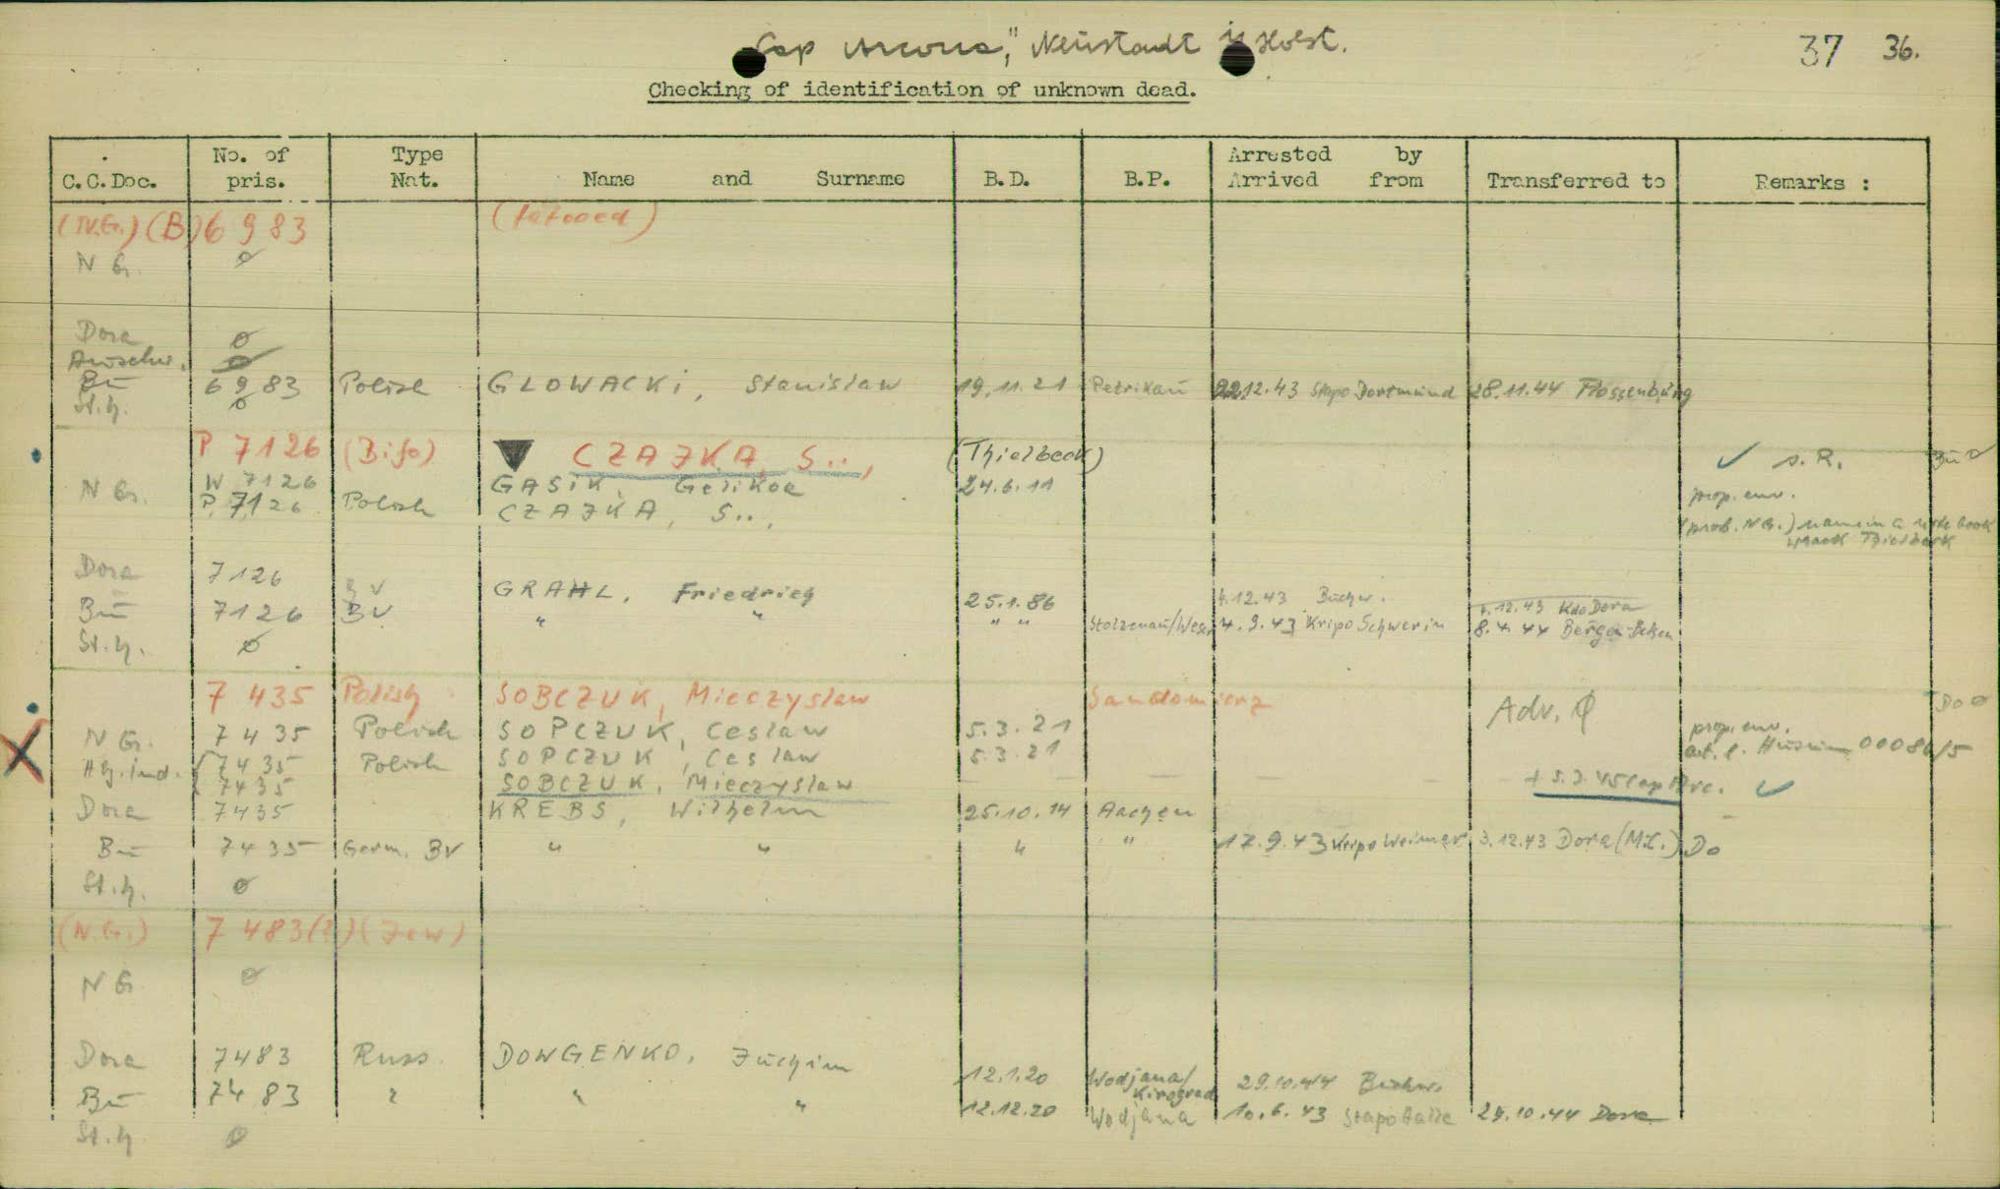 "Cap Arcona", Neustadt i. Holst.
37 36.
Checking of identification of unknown dead.
C.C.Doc. No. of pris. Type Nat. Name and Surname B.D. B.P. Arrested by Arrived from Transferred to Remarks :
(N.G.) (B) 6983 (tatooed)
N G. ø
Dora ø
Auschw. ø
Bu 6983 Polish GLOWACKi, Stanislaw 19.11.21 Petrikau 22.12.43 Stapo Dortmund 28.11.44 Flossenbürg
St.h. ø
P 7126 (Bifo) ▼ CZAJKA, S.., (Thielbeck) ✓ s.R. Bu ø
W 7126 GASiK, 24.6.11 prop. env.
N G. P. 7126 Polish CZAJKA, S.., (prob. N G.) name in a note book
wrack Thielbeck
Dora 7126 BV GRAHL, Friedrich 25.1.86 4.12.43 Buchw. 4.12.43 Kdo Dora
Bu 7126 BV " " " " Stolzenau/Weser 4.9.43 Kripo Schwerin 8.4.44 Bergen-Belsen
St.h. ø
7435 Polish SOBCZUK, Mieczyslaw Sandomierz Adv. ø Do ø
N G. 7435 Polish SOPCZUK, Ceslaw 5.3.21 prop. env.
Hg. ind. 7435 Polish SOPCZUK, Ceslaw 5.3.21 Husum 00086/5
7435 SOBCZUK, Mieczyslaw — — — + 5.3.45 Cap Arc. ✓
Dora 7435 KREBS, Wilhelm 25.10.14 Aachen
Bu 7435 Germ. BV " " " " 17.9.43 Kripo Weimar 3.12.43 Dora (M.L.) Do
St.h. ø
(N.G.) 7483(?) (Jew)
N G ø
Dora 7483 Russ. DOWGENKO, Juchim 12.1.20 Wodjana/Kirograd 29.10.44 Buchw.
Bu 7483 " " " 12.12.20 Wodjana 10.6.43 Stapo Halle 29.10.44 Dora
St.h. ø